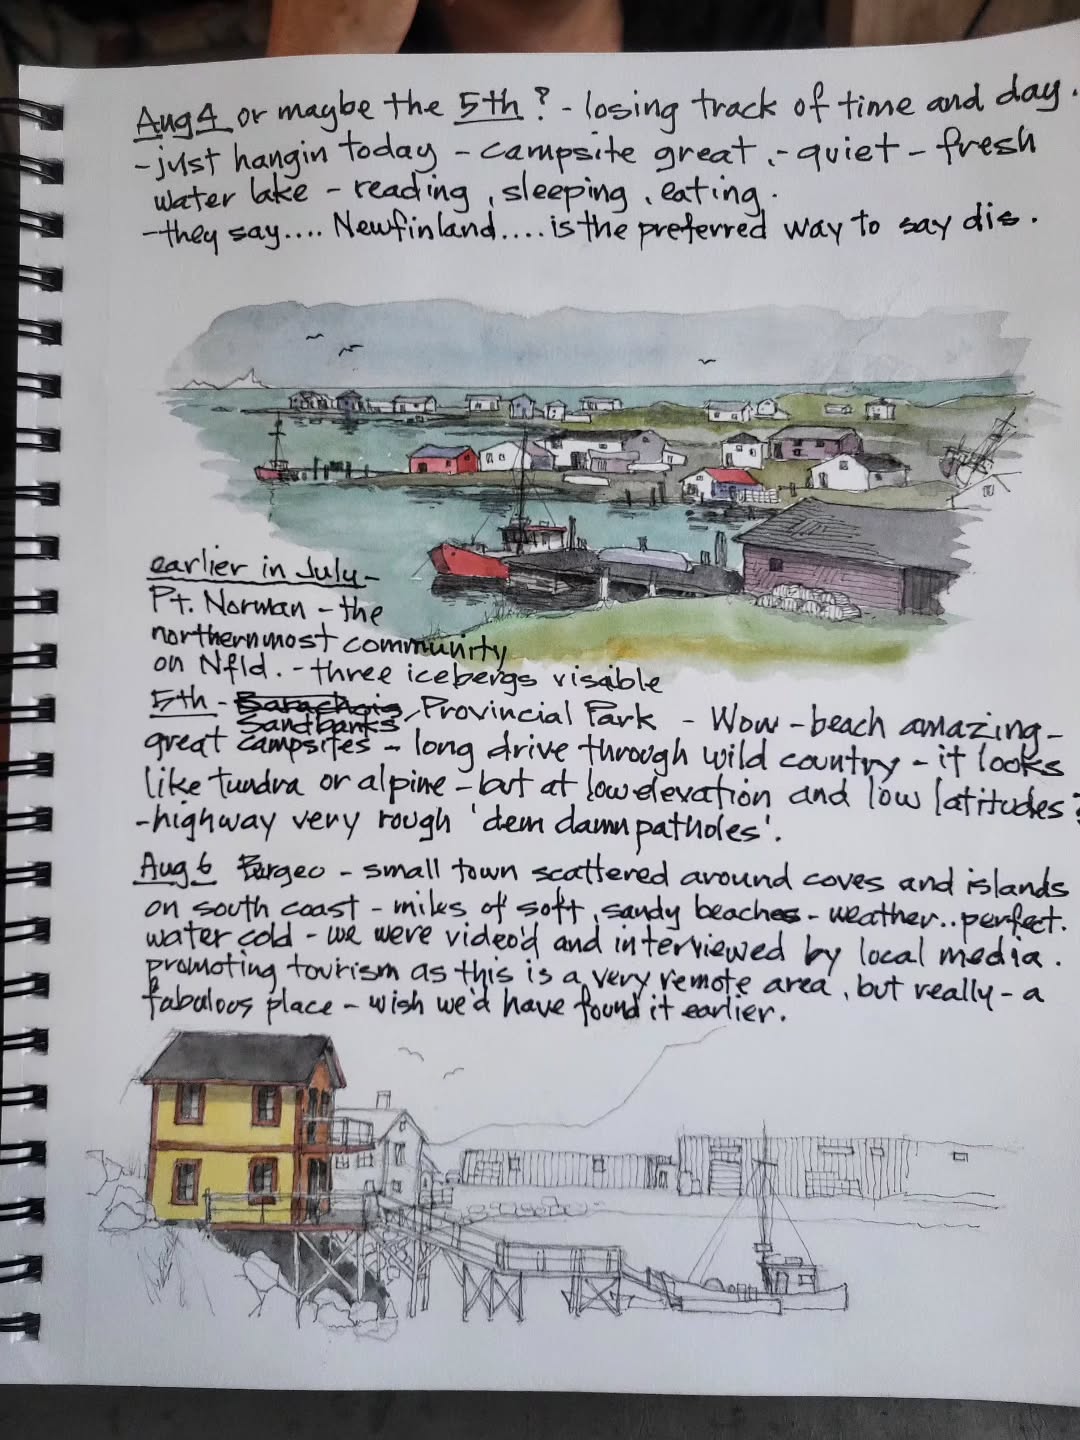 Aug 4 or maybe the 5th? - losing track of time and day.
- just hangin today - campsite great. - quiet - fresh
water lake - reading, sleeping, eating.
- they say.... Newfinland.... is the preferred way to say dis.
earlier in July -
Pt. Norman - the
northernmost community
on Nfld. - three icebergs visible
5th - Barachois Provincial Park - Wow - beach amazing -
Sandbanks
great campsites - long drive through wild country - it looks
like tundra or alpine - but at low elevation and low latitudes?
- highway very rough 'dem damn patholes'.
Aug 6 Burgeo - small town scattered around coves and islands
on south coast - miles of soft, sandy beaches - weather.. perfect.
water cold - we were video'd and interviewed by local media.
promoting tourism as this is a very remote area, but really - a
fabulous place - wish we'd have found it earlier.